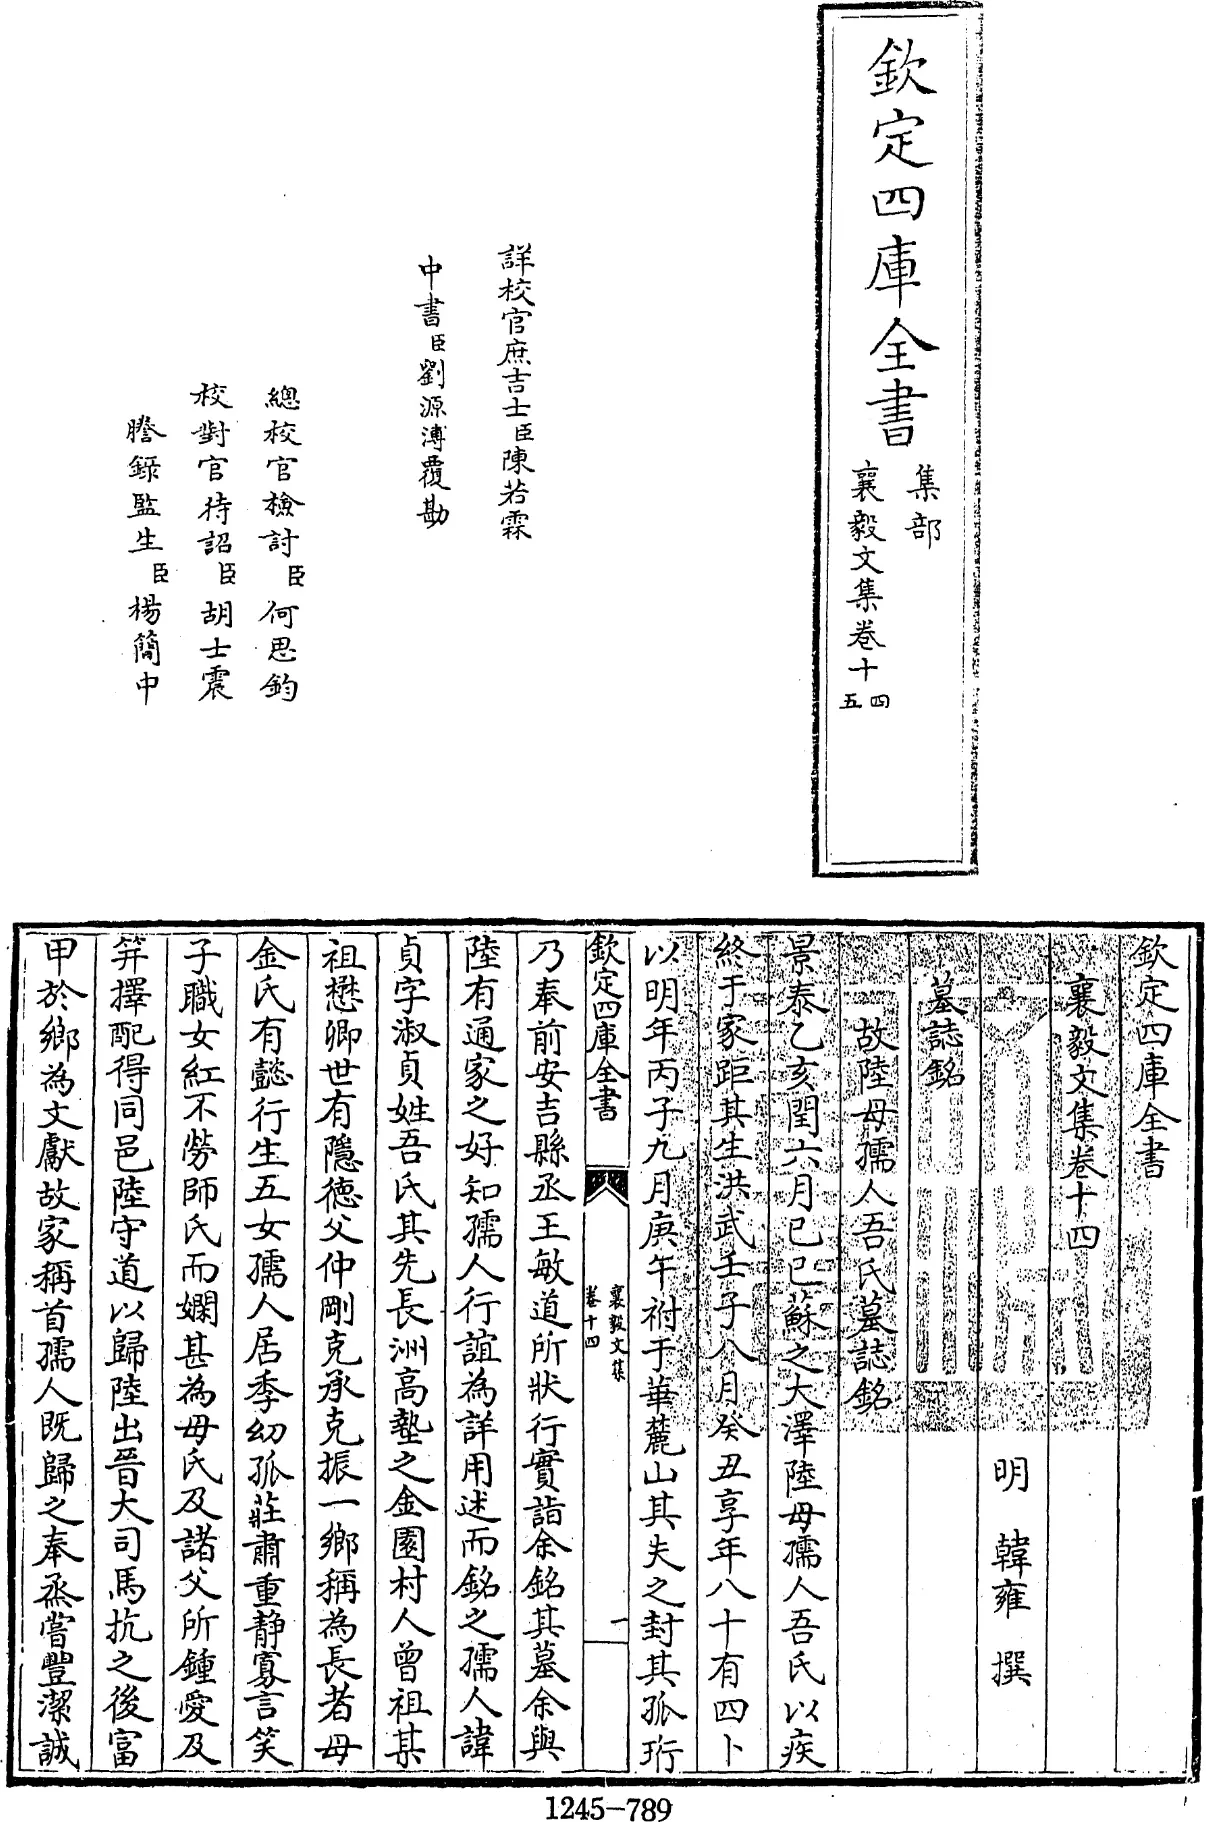 欽定四庫全書
集部
襄毅文集卷十四五
詳校官庶吉士臣陳若霖
中書臣劉源溥覆勘
總校官檢討臣何思鈞
校對官待詔臣胡士震
謄錄監生臣楊簡中
欽定四庫全書
襄毅文集卷十四
明 韓雍 撰
墓誌銘
故陸母孺人吾氏墓誌銘
景泰乙亥閏六月己巳蘇之大澤陸母孺人吾氏以疾
終于家距其生洪武壬子八月癸丑享年八十有四卜
以明年丙子九月庚午祔于華麓山其夫之封其孤珩
欽定四庫全書
襄毅文集
卷十四
一
乃奉前安吉縣丞王敏道所狀行實詣余銘其墓余與
陸有通家之好知孺人行誼為詳用述而銘之孺人諱
貞字淑貞姓吾氏其先長洲高墊之金園村人曾祖某
祖懋卿世有隱德父仲剛克承克振一鄉稱為長者母
金氏有懿行生五女孺人居季幼孤莊肅重静寡言笑
子職女紅不勞師氏而嫻甚為母氏及諸父所鍾愛及
笄擇配得同邑陸守道以歸陸出晉大司馬抗之後富
甲於鄉為文獻故家稱首孺人既歸之奉烝嘗豐潔誠
1245-789